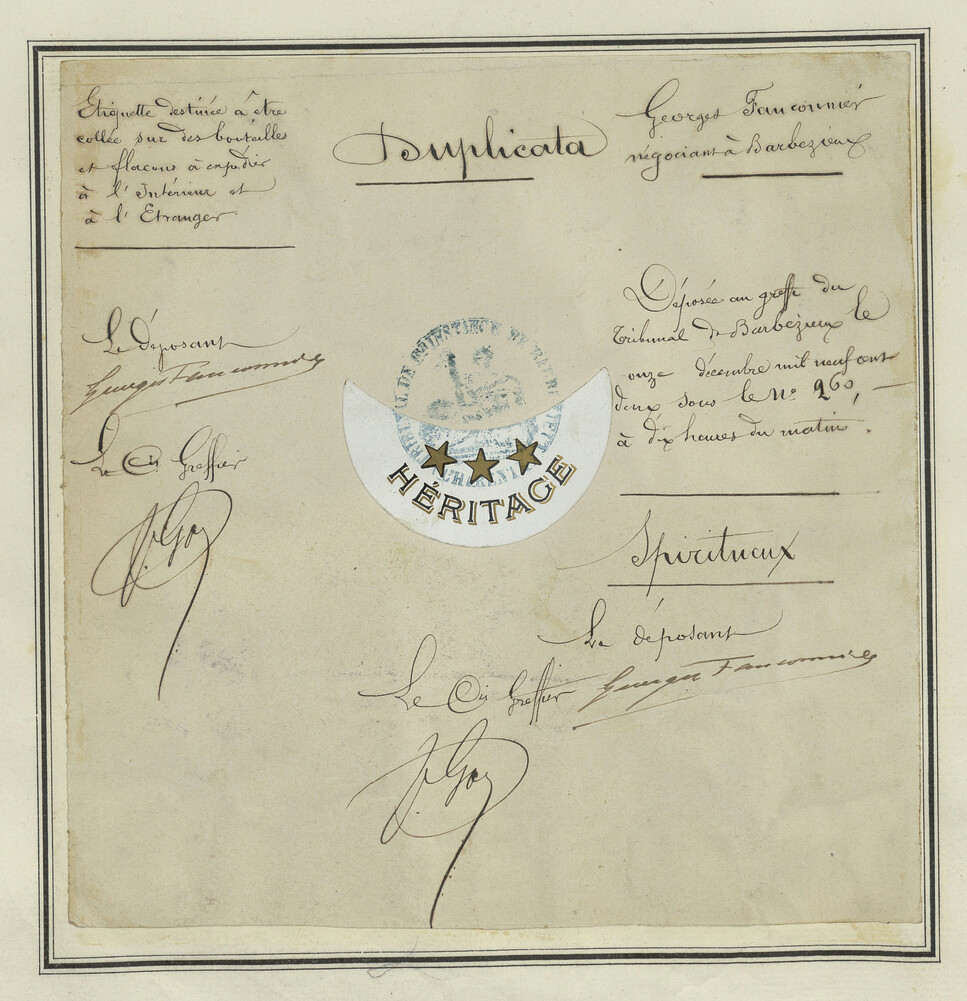 Etiquette destinée à être
collée sur des bouteilles
et flacons à expédier
à l'Intérieur et
à l'Etranger
Duplicata
Georges Fauconnier
négociant à Barbezieux
Le déposant
Georges Fauconnier
Le Cis Greffier
Déposée au greffe du
Tribunal de Barbezieux le
onze décembre mil neuf cent
deux sous le No 260,
à dix heures du matin.
HÉRITAGE
Spiritueux
Le déposant
Georges Fauconnier
Le Cis Greffier